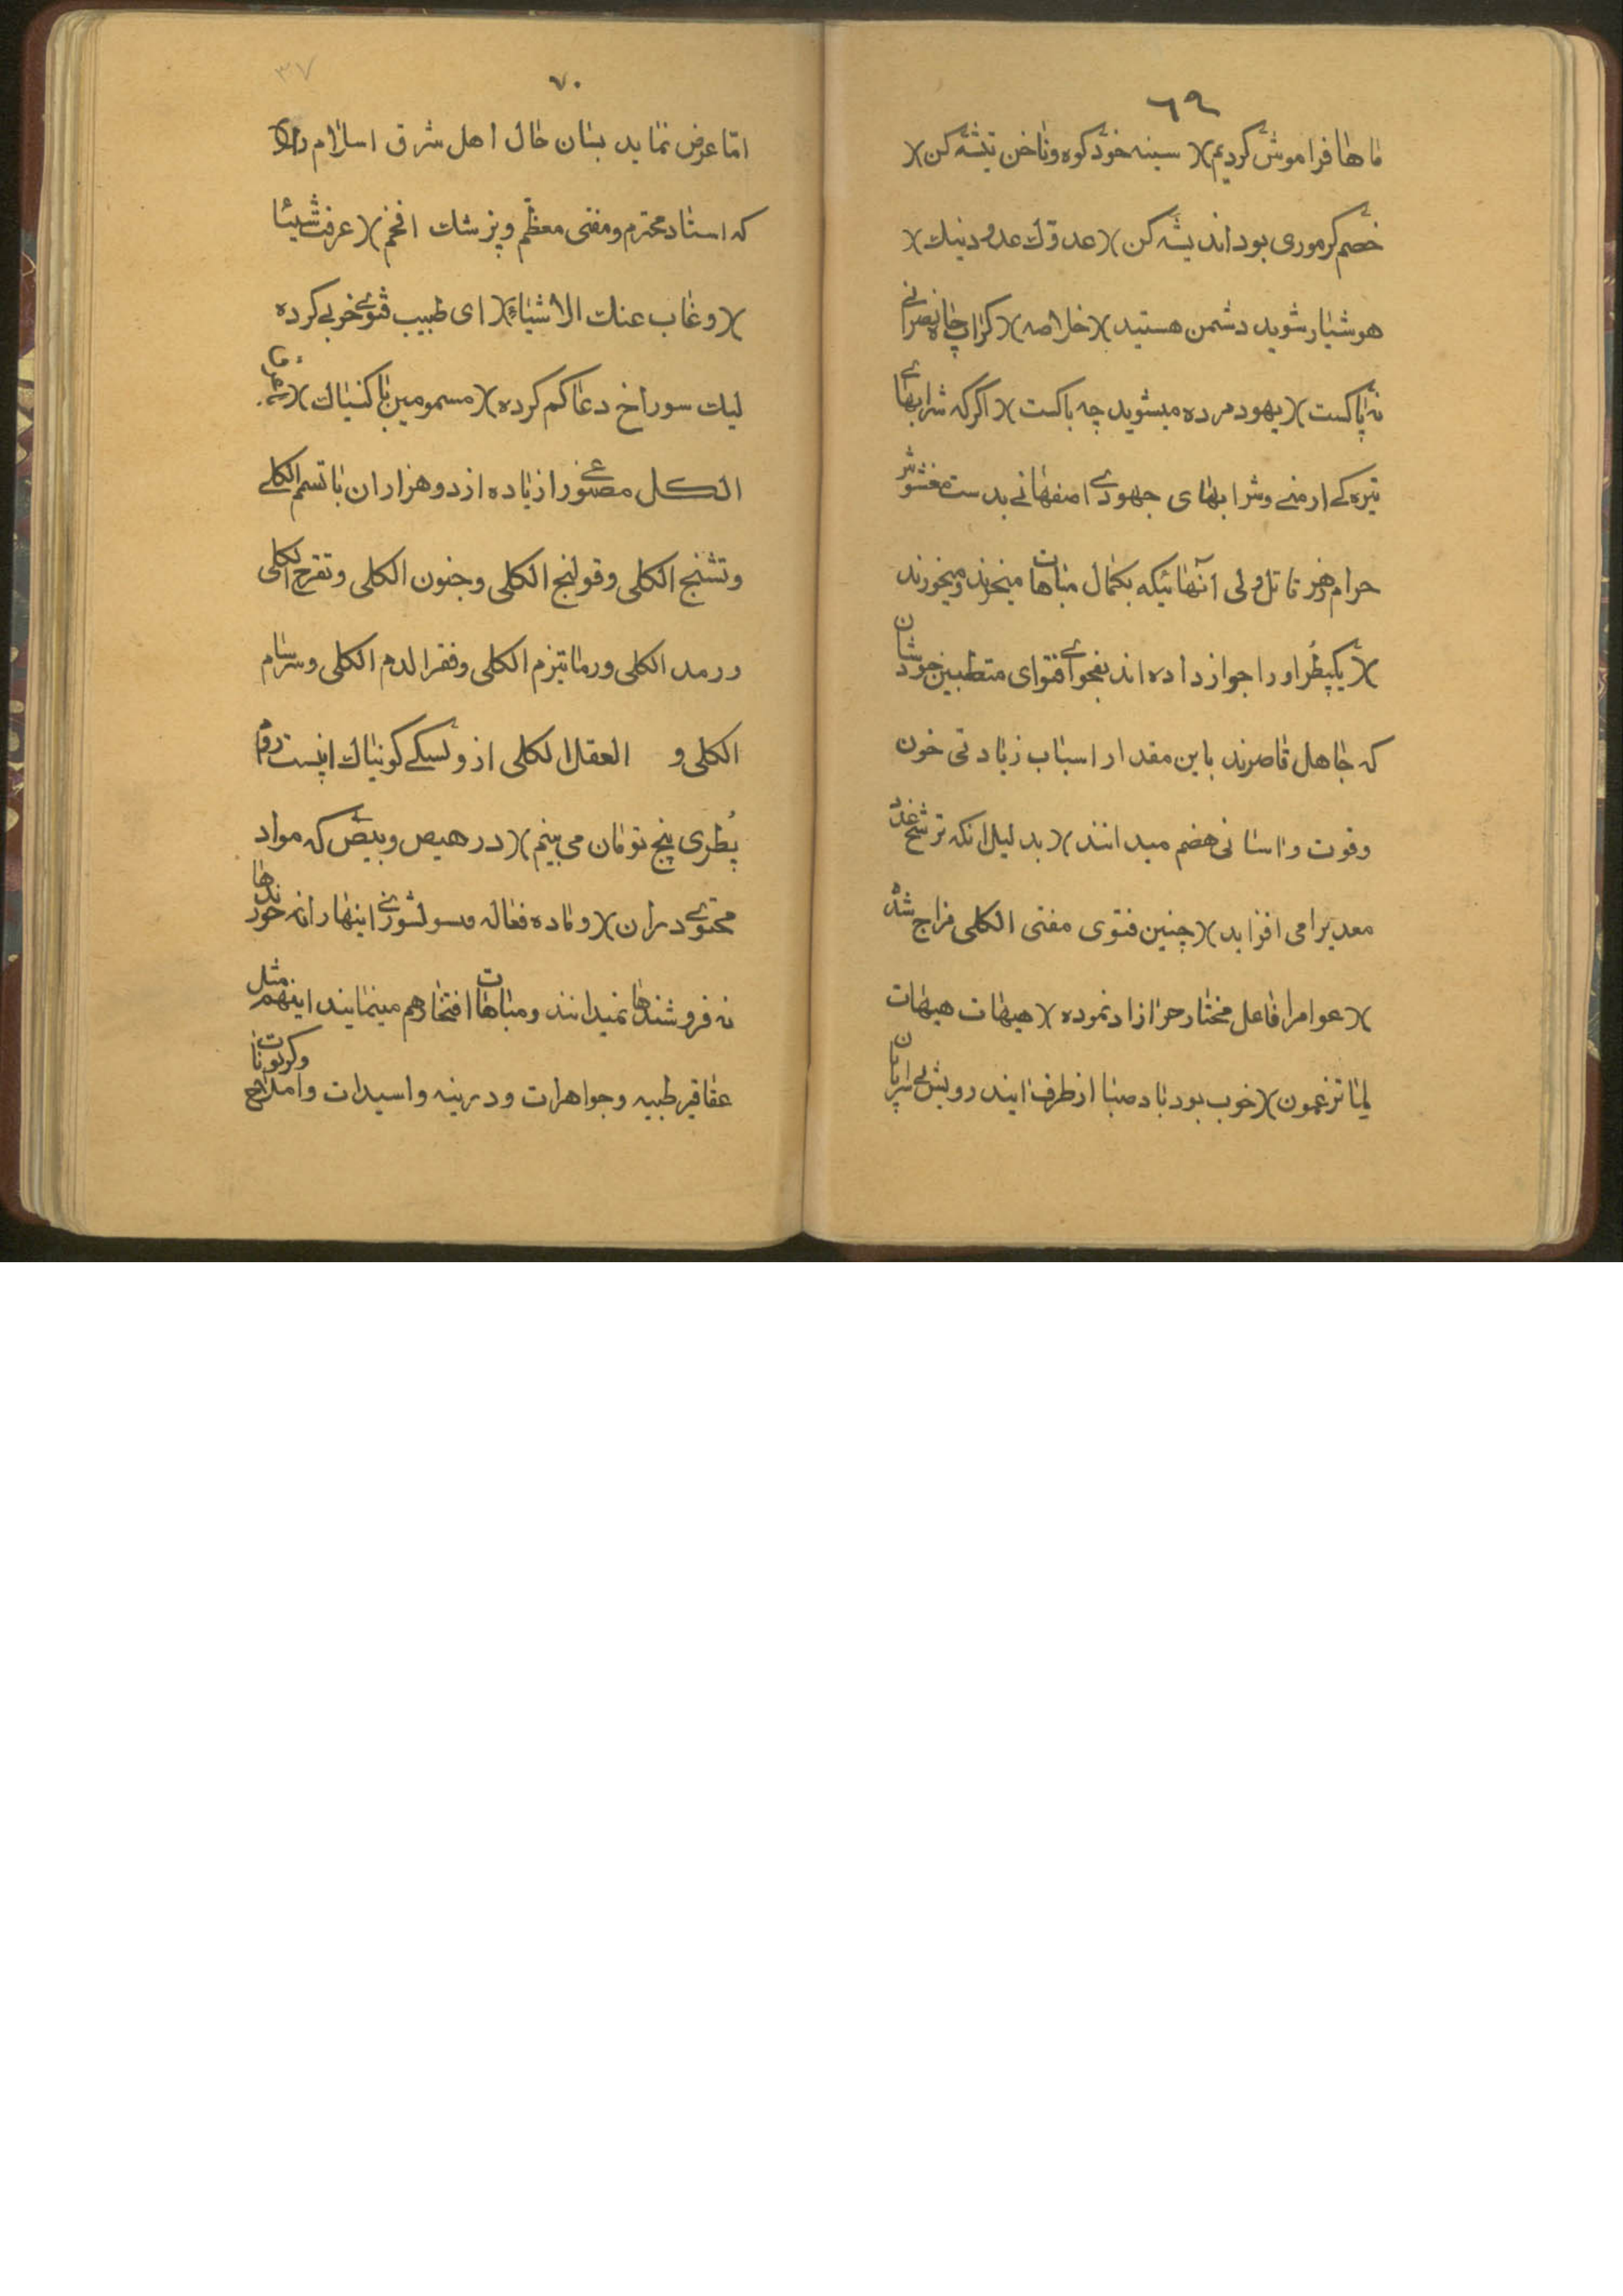 ٦٩
ما ها فراموش کردیم)( سینه خود کوه و ناخن تیشه کن)(
خصم کر موری بود اندیشه کن)( عدوّک عدو دینک)(
هوشیار شوید دشمن هستید)( خلاصه)( کر اب چاه نصرانے
نه پاکست)( یهود مرده میشوید چه باکست)( اکر که شرابهائے
تیره کے ارمنے و شرابهای جهودے اصفهانے بدست مغشوش
حرام و زهر قاتل ولی آنهائیکه بکمال مباهات میخرند و میخورند
)( یکپطر او را جواز داده اند بفحوائے فتوای متطببین خودشان
که جاهل قاصرند باین مقدار اسباب زیادتی خون
وقوت و اسانی هضم میدانند)( بدلیل انکه ترشح غدد
معدیرا می افزاید)( چنین فتوی مفتی الکلی مزاج شده
)( عوامرا فاعل مختار حر ازاد نموده)( هیهات هیهات
لما تزعمون)( خوب بود باد صبا از طرف ایند رویش بی سر پایان
٧٠
امّا عرض نماید بسان حال اهل شرق اسلام را)(
که استاد محترم و مفتی معظّم و پزشک افخم)( عرفت شیئا
)( و غاب عنک الاشیاء)( ای طبیب فتوئے خوبے کرده
لیک سوراخ دعا کم کرده)( مسمومین با کنیاک)(
الکل مصنوعے را زیاده از دو هزاران با تسمم الکلے
و تشنج الکلی و قولنج الکلی و جنون الکلی و تقرح الکلی
و رمد الکلی و رماتیزم الکلی و فقر الدم الکلی و سرسام
الکلی و العقل الکلی از وسکے کونیاک اینست روم
پُطری پنج تومان می بینم)( در هیص و بیص که مواد
محتوے در ان)( و ماده فعاله مسولشورے اینها را نه خورندها
نه فروشندها نمیدانند و مباهات افتخار هم مینمایند اینهم مثل
عقاقیر طبیه و جواهرات و درینه و اسیدات و املاح و کربونات